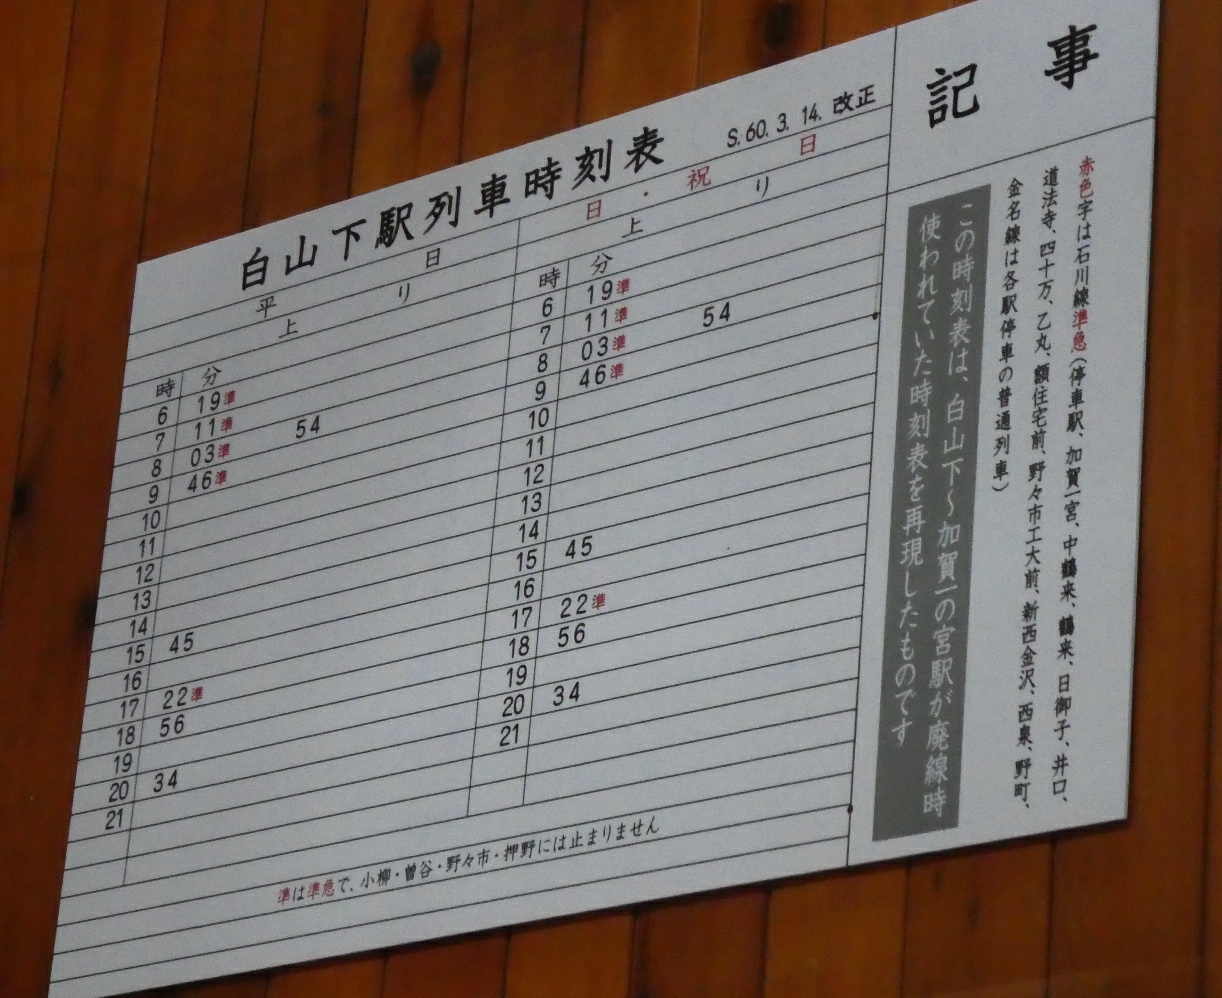 白山下駅列車時刻表
S.60.3.14.改正
平日
上り
時 分
6 19準
7 11準 54
8 03準
9 46準
10
11
12
13
14
15 45
16
17 22準
18 56
19
20 34
21
日・祝日
上り
時 分
6 19準
7 11準 54
8 03準
9 46準
10
11
12
13
14
15 45
16
17 22準
18 56
19
20 34
21
準は準急で、小柳・曽谷・野々市・押野には止まりません
記事
赤色字は石川線準急(停車駅、加賀一宮、中鶴来、鶴来、日御子、井口、
道法寺、四十万、乙丸、額住宅前、野々市工大前、新西金沢、西泉、野町、
金名線は各駅停車の普通列車)
この時刻表は、白山下～加賀一の宮駅が廃線時
使われていた時刻表を再現したものです